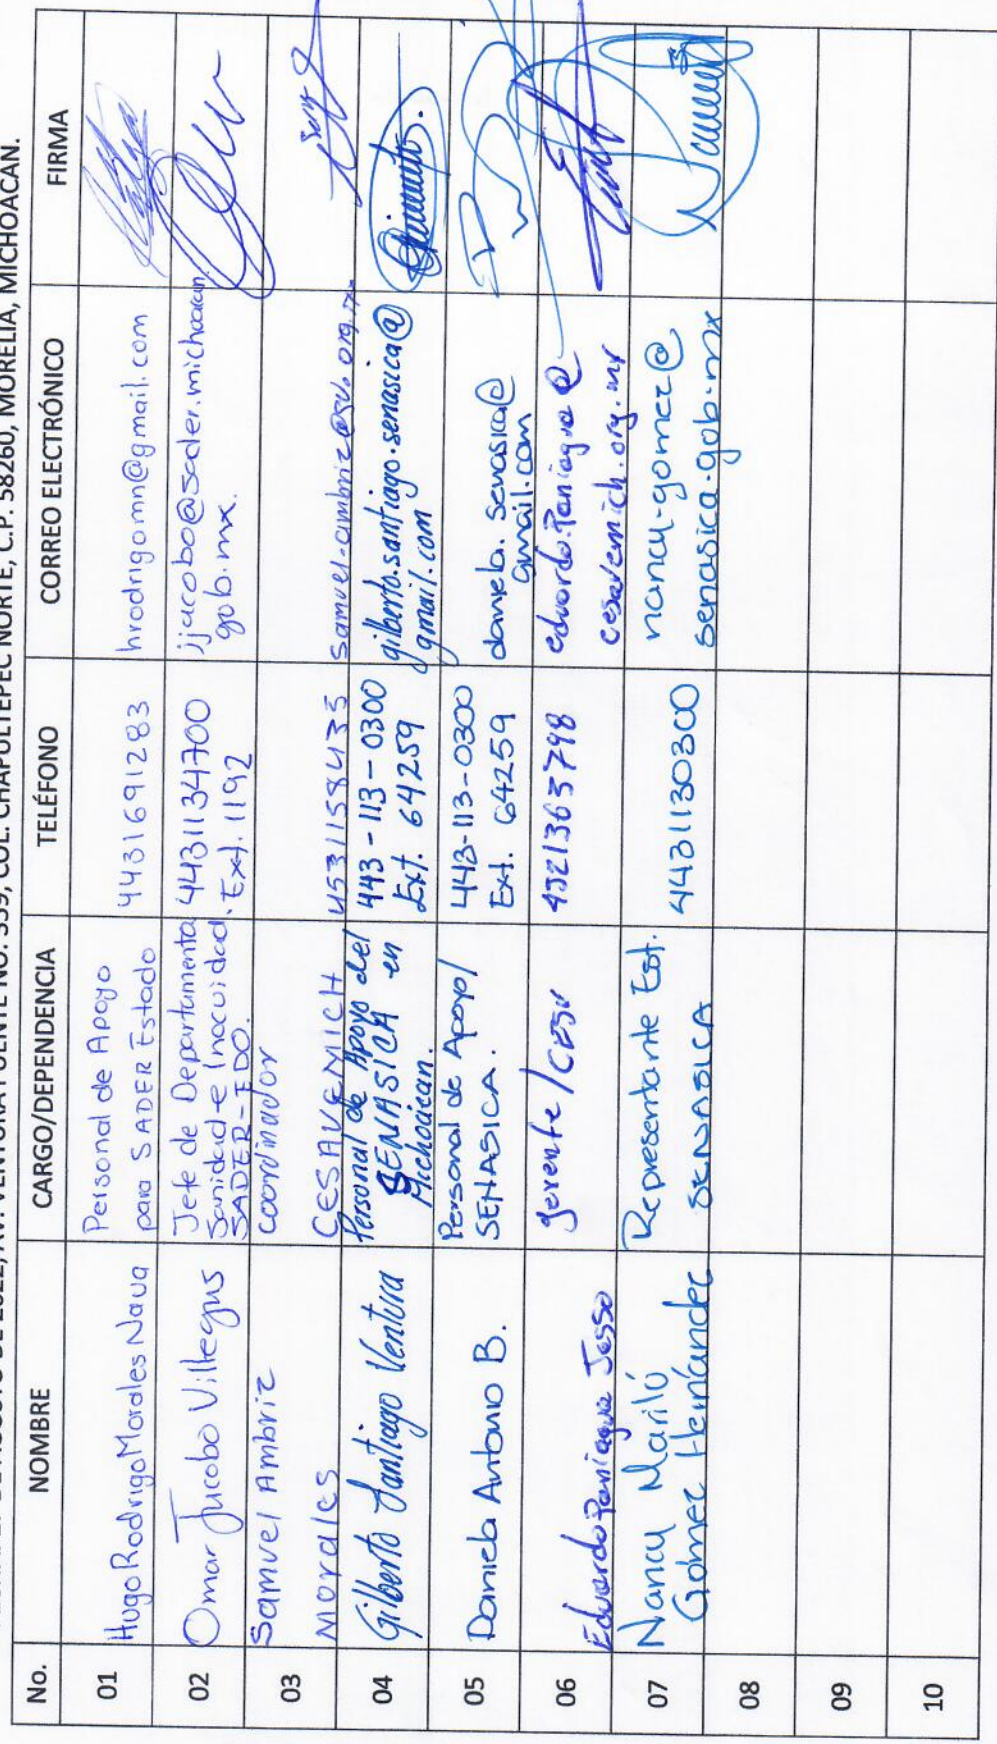 AV. VENTURA PUENTE NO. 359, COL. CHAPULTEPEC NORTE, C.P. 58260, MORELIA, MICHOACÁN.
No. NOMBRE CARGO/DEPENDENCIA TELÉFONO CORREO ELECTRÓNICO FIRMA
01 Hugo Rodrigo Morales Nava Personal de Apoyo
para SADER Estado 4431691283 hrodrigomn@gmail.com
02 Omar Jacobo Villegas Jefe de Departamento
Sanidad e Inocuidad
SADER-EDO. 4431134700
Ext. 1192 jjacobo@sader.michoacan.
gob.mx.
03 Samuel Ambriz
Morales coordinador
CESAVEMICH 4531158435 samuel.ambriz@sv.org.mx
04 Gilberto Santiago Ventura Personal de Apoyo del
SENASICA en
Michoacan. 443-113-0300
Ext. 64259 gilberto.santiago.senasica@
gmail.com
05 Daniela Antonio B. Personal de Apoyo/
SENASICA. 443-113-0300
Ext. 64259 daniela.senasica@
gmail.com
06 Eduardo Paniagua Jasso gerente/CESV 4521363798 eduardo.Paniagua@
cesavemich.org.mx
07 Nancy Mariló
Gómez Hernández Representante Est.
SENASICA 4431130300 nancy.gomez@
senasica.gob.mx
08
09
10